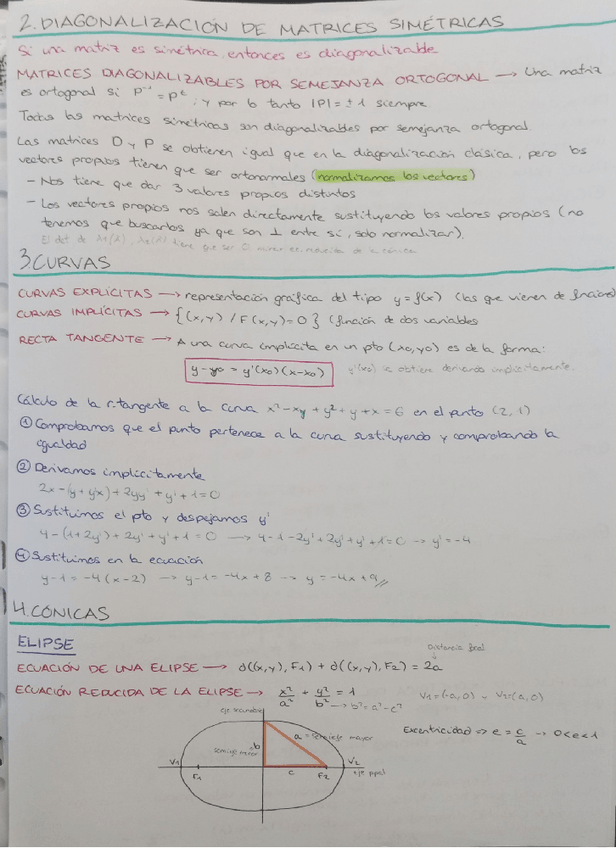 2. DIAGONALIZACIÓN DE MATRICES SIMÉTRICAS
Si una matriz es simétrica, entonces es diagonalizable
MATRICES DIAGONALIZABLES POR SEMEJANZA ORTOGONAL → Una matriz
es ortogonal si P⁻¹ = Pᵗ, y por lo tanto |P| = ±1 siempre
Todas las matrices simétricas son diagonalizables por semejanza ortogonal
Las matrices D y P se obtienen igual que en la diagonalización clásica, pero los
vectores propios tienen que ser ortonormales (normalizamos los vectores)
- Nos tiene que dar 3 valores propios distintos
- Los vectores propios nos salen directamente sustituyendo los valores propios (no
tenemos que buscarlos ya que son ⊥ entre sí, solo normalizar).
El det de tiene que ser 0
3 CURVAS
CURVAS EXPLÍCITAS → representación gráfica del tipo y = f(x) (las que vienen de función)
CURVAS IMPLÍCITAS → {(x,y) / F(x,y)=0} (función de dos variables
RECTA TANGENTE → A una curva implícita en un pto (x0,y0) es de la forma:
y-y0 = y'(x0)(x-x0) y'(x0) se obtiene derivando implícitamente.
Cálculo de la r.tangente a la curva x²-xy+y²+y+x=6 en el punto (2,1)
① Comprobamos que el punto pertenece a la curva sustituyendo y comprobando la
igualdad
② Derivamos implícitamente
2x-(y+y'x)+2yy'+y'+1=0
③ Sustituimos el pto y despejamos y'
4-(1+2y')+2y'+y'+1=0 → 4-1-2y'+2y'+y'+1=0 → y'=-4
④ Sustituimos en la ecuación
y-1=-4(x-2) → y-1=-4x+8 → y=-4x+9
4. CÓNICAS
ELIPSE
Distancia focal
ECUACIÓN DE UNA ELIPSE → d((x,y),F1) + d((x,y),F2) = 2a
ECUACIÓN REDUCIDA DE LA ELIPSE → x²/a² + y²/b² = 1 V1=(-a,0) V2=(a,0)
→ b²=a²-c²
eje secundario
a = semieje mayor Excentricidad ⇒ e = c/a → 0<e<1
b
semieje menor
V1 F1 c F2 V2
eje ppal